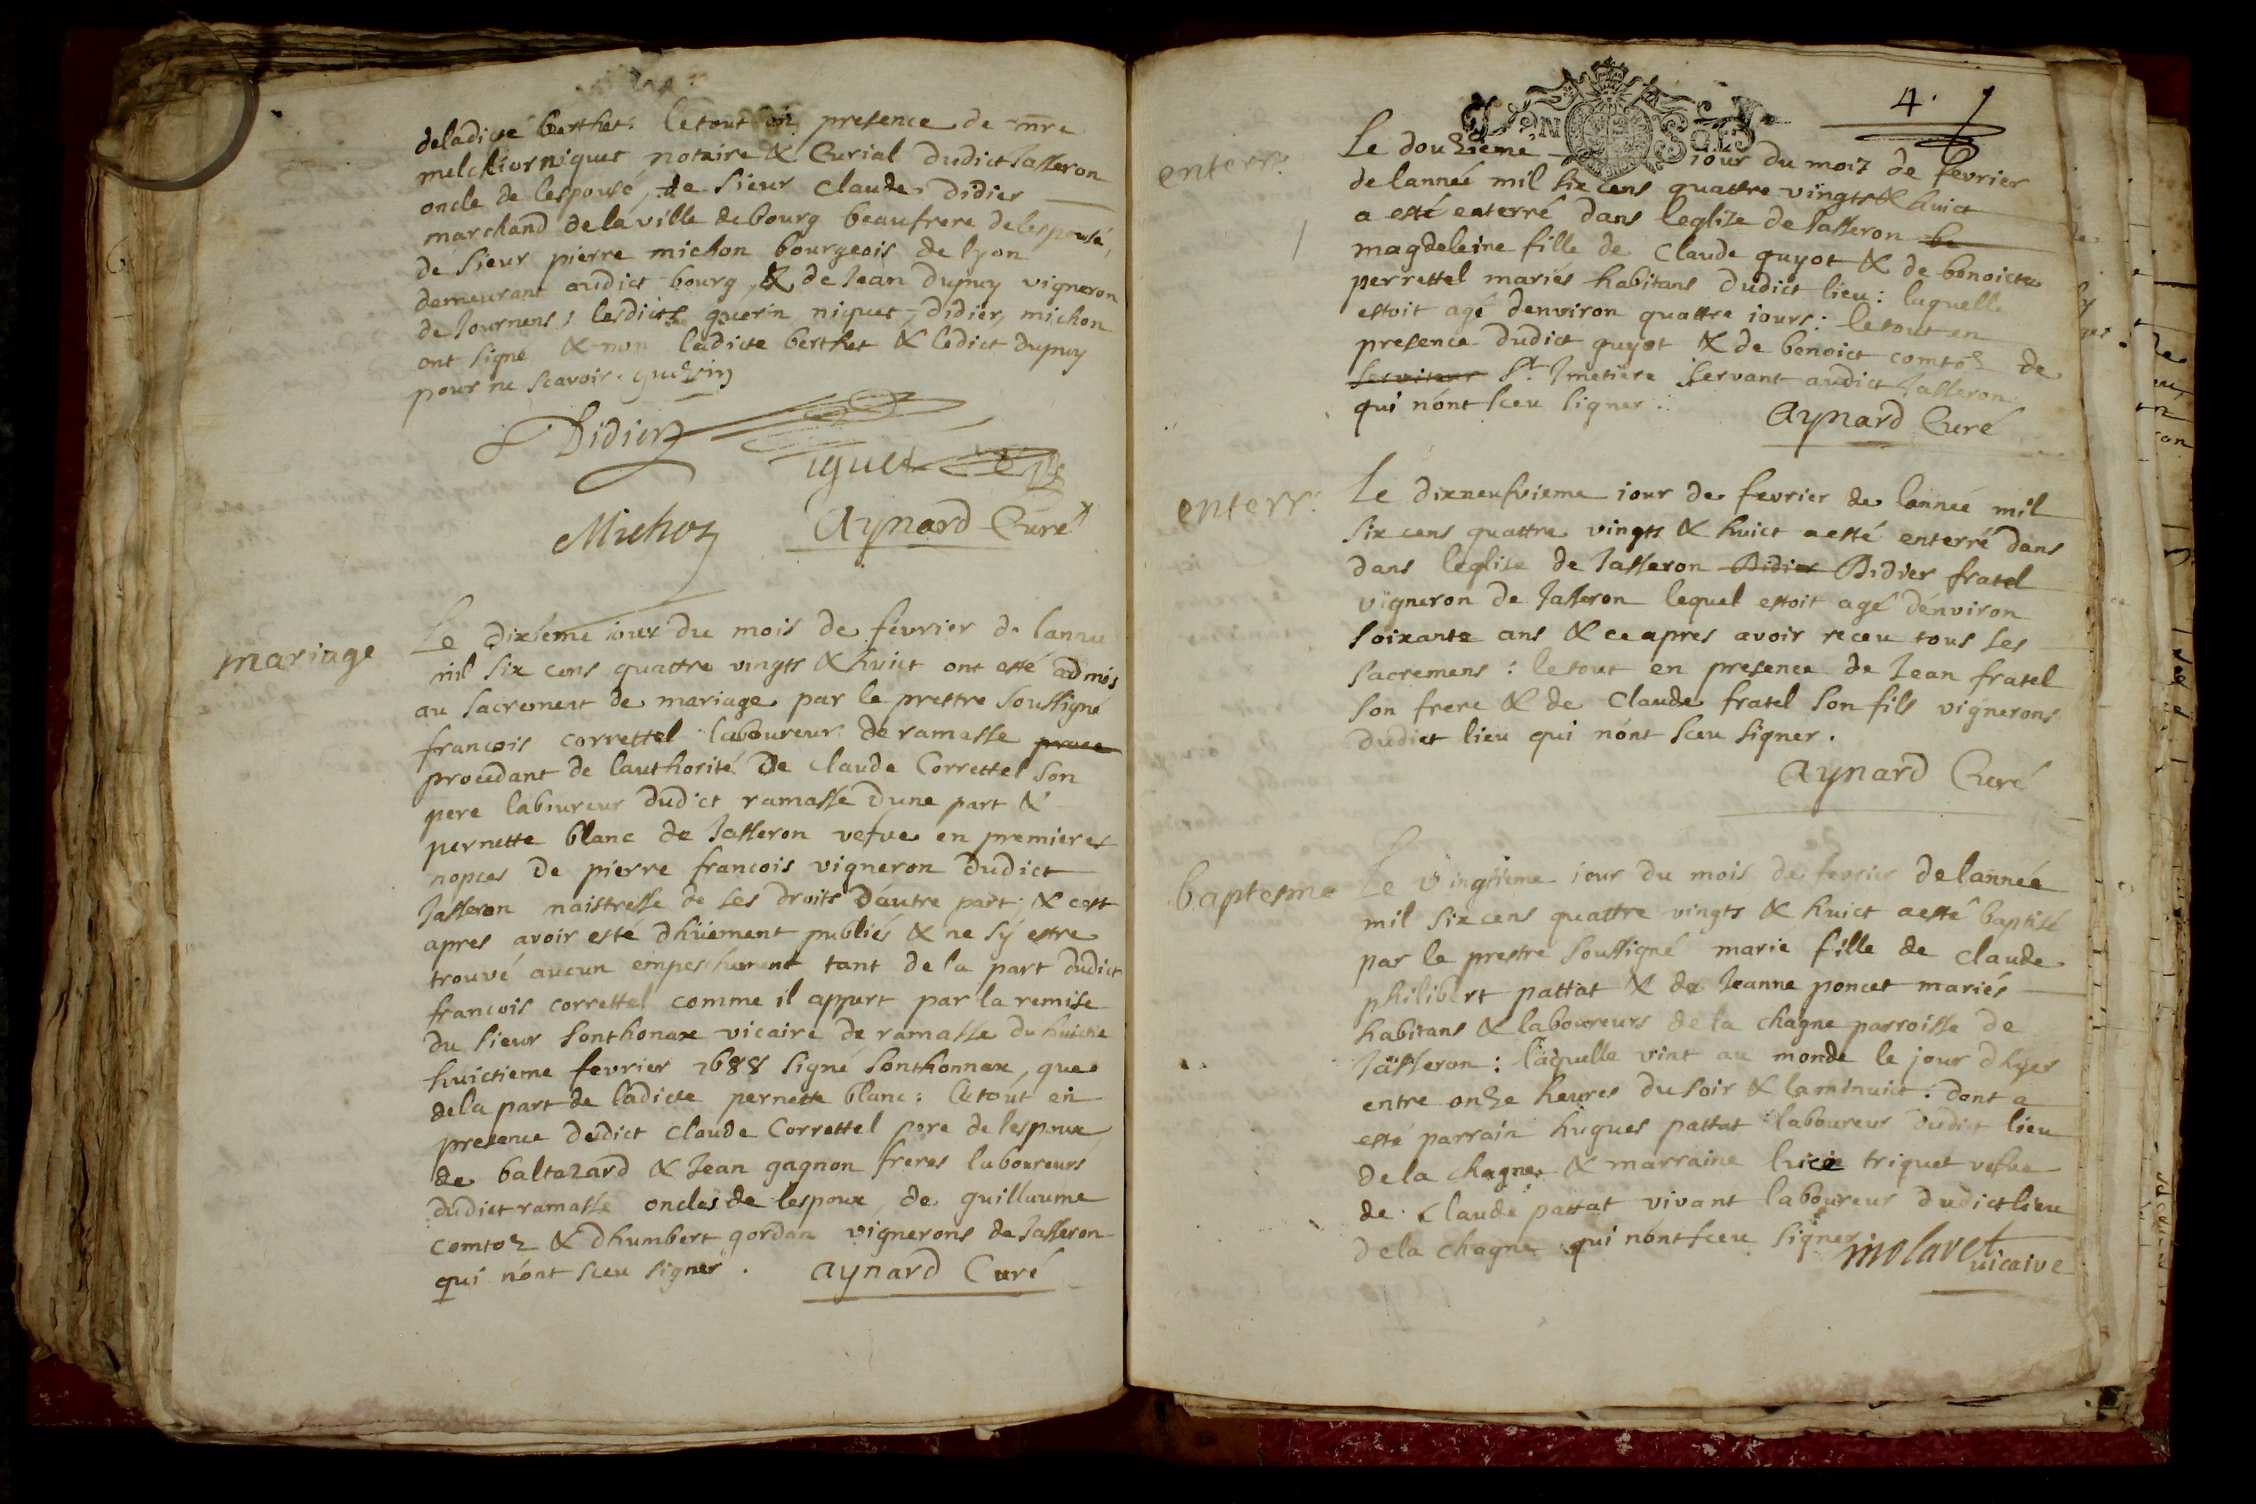 deladicte berthet. le tout en presence de mre
melchior niquet notaire & Curial dudict Jasseron
oncle de lespousé, de sieur claude didier
marchand de la ville de bourg beaufrere de lespousé,
de sieur pierre michon bourgeois de lyon
demeurant audict bourg, & de Jean dupuy vigneron
de Journens; lesdicts guerin niquet, didier, michon
ont signe & non ladicte berthet & ledict dupuy
pour ne scavoir. guerin
Didier
Michon Aynard Curé
mariage
Le dixieme iour du mois de fevrier de lannee
mil six cens quattre vingts & huict ont esté admis
au sacrement de mariage par le prestre soussigné
francois correttel laboureur de ramasse
procedant de lauthorité de claude Correttel son
pere laboureur dudict ramasse dune part &
pernette blanc de Jasseron vefve en premieres
nopces de pierre francois vigneron dudict
Jasseron maistresse de ses droits dautre part; & cest
apres avoir esté dhüement publiés & ne sy estre
trouvé aucun empeshement tant de la part dudict
francois correttel comme il appert par la remise
du sieur sonthonax vicaire de ramasse du huictie
huictieme fevrier 1688 signé sonthonnax, que
dela part de ladicte pernette blanc; le tout en
presence dudict claude Correttel pere de lespoux,
de baltazard & Jean gagnon freres laboureurs
dudict ramasse oncles de lespoux, de guillaume
comtoz & dhumbert gordan vignerons de Jasseron
qui nont sceu signer. aynard Curé
4.
enterr.
Le douzieme iour du moiz de fevrier
de lannée mil six cens quattre vingts & huict
a esté enterré dans leglize de Jasseron be
magdeleine fille de claude guyot & de benoicte
perrettel mariés habitans dudict lieu: laquelle
estoit agé denviron quattre iours: le tout en
presence dudict guyot & de benoict comtoz de
serviteur St Jmetiere servant audict Jasseron
qui nont sceu signer.
Aynard Curé
enterr.
Le dixneufvieme iour de fevrier de lannee mil
six cens quattre vingts & huict a esté enterré dans
dans leglize de Jasseron Didier Didier fratel
vigneron de Jasseron lequel estoit agé denviron
soixante ans & ce apres avoir receu tous ses
sacremens: le tout en presence de Jean fratel
son frere & de claude fratel son fils vignerons
dudict lieu qui nont sceu signer.
Aynard Curé
baptesme
Le vingtieme iour du mois de fevrier de lannée
mil six cens quattre vingts & huict a esté baptisé
par le prestre soussigné marie fille de claude
philibert pattat & de Jeanne poncet mariés
habitans & laboureurs de la chagne parroisse de
Jasseron: laquelle vint au monde le jour dhyer
entre onze heures du soir & la minuict: dont a
esté parrain hugues pattat laboureur dudict lieu
de la chagne, & marraine lucie triquet vefve
de claude pattat vivant laboureur dudict lieu
de la chagne qui nont sceu signer.
molaret vicaire